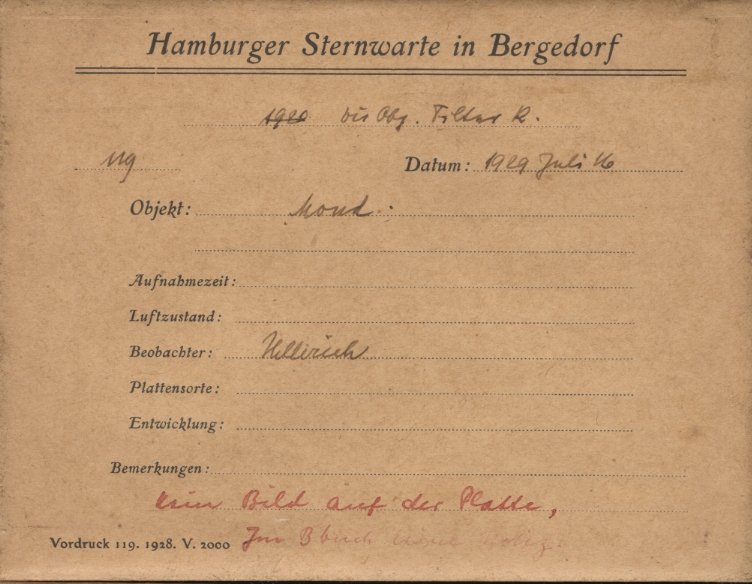 Hamburger Sternwarte in Bergedorf
vis Obj. Filter R.
Datum: 1929 Juli 16
Objekt: Mond.
Aufnahmezeit:
Luftzustand:
Beobachter: Hellerich
Plattensorte:
Entwicklung:
Bemerkungen:
Kein Bild auf der Platte,
Vordruck 119. 1928. V. 2000 Im Bbuch keine